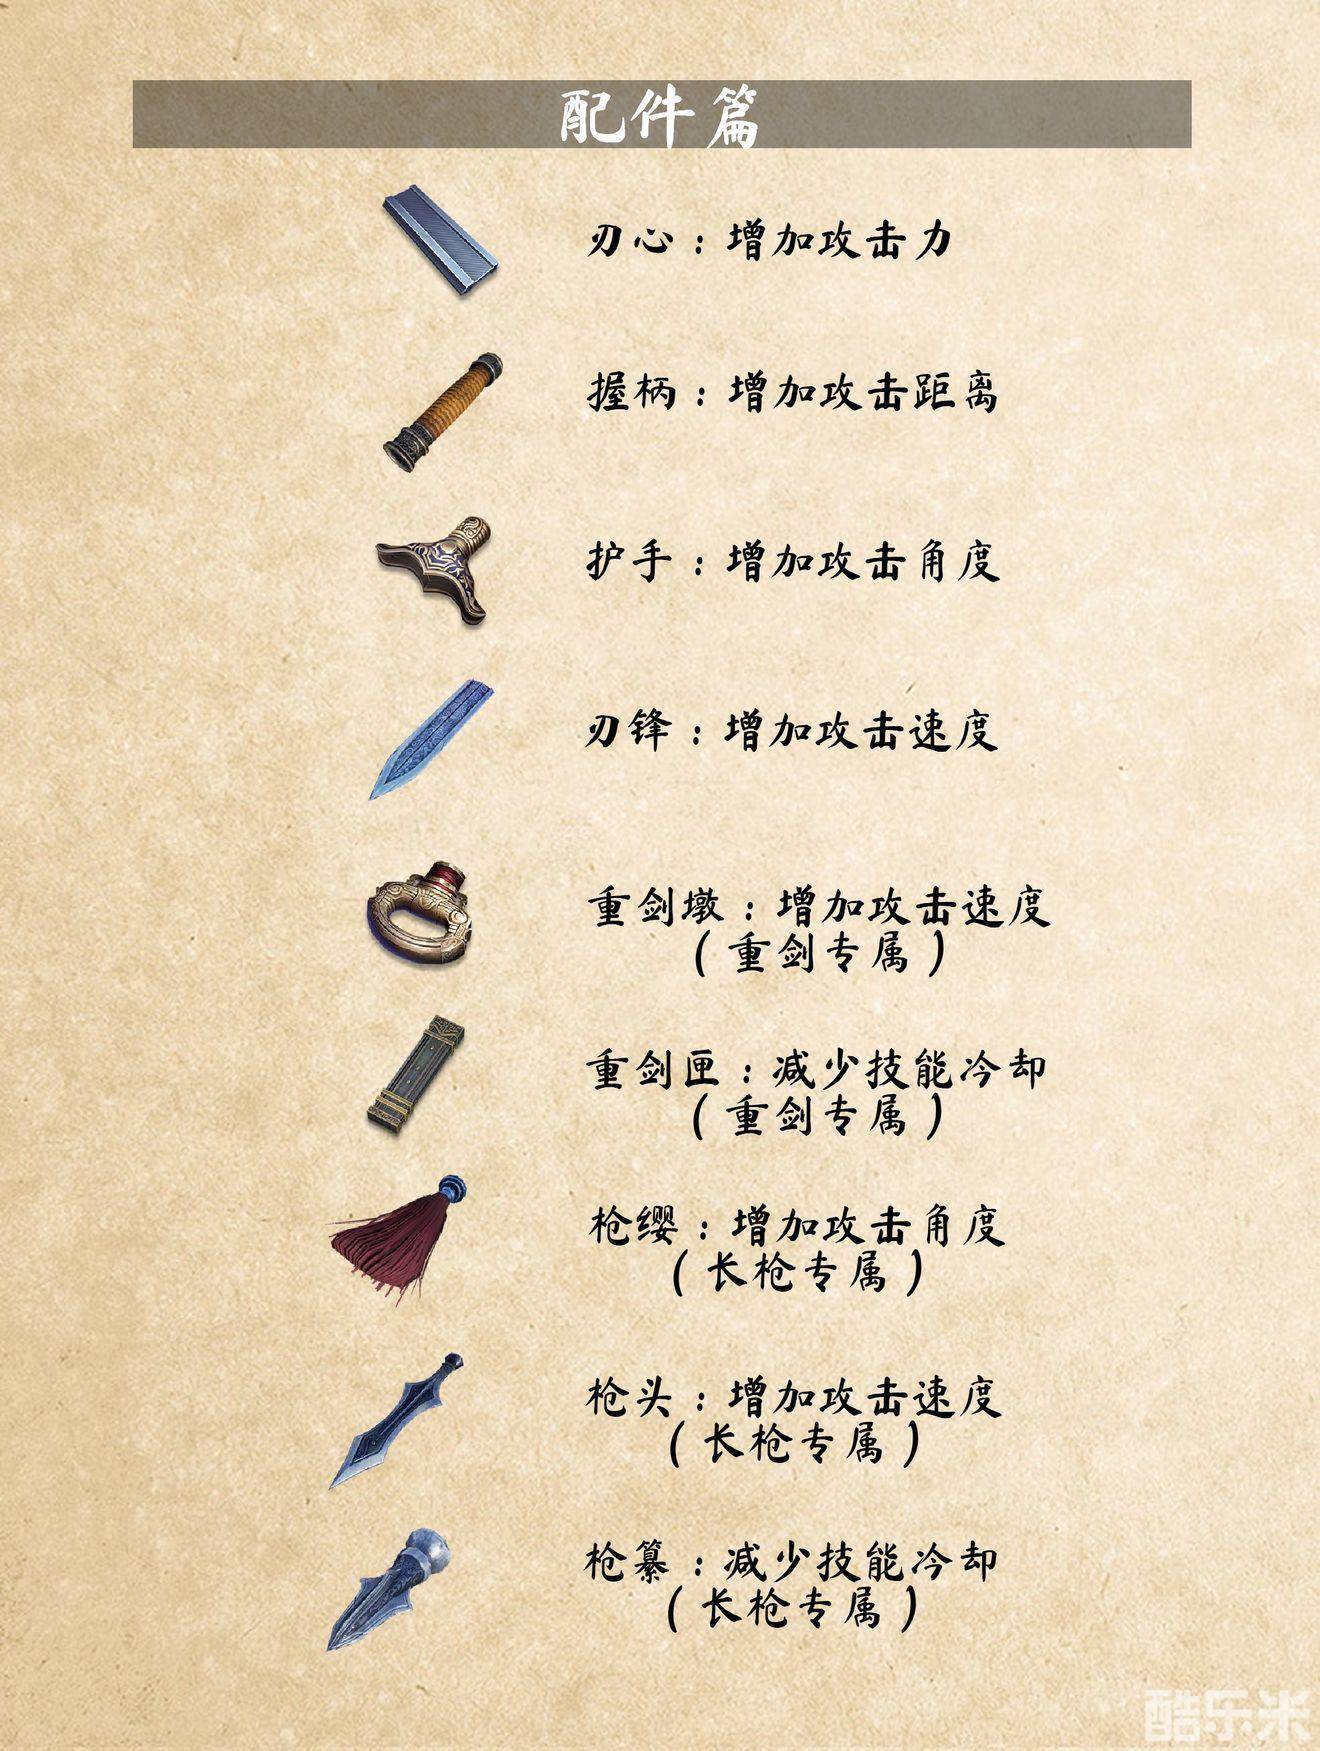 配件篇
刃心：增加攻击力
握柄：增加攻击距离
护手：增加攻击角度
刃锋：增加攻击速度
重剑墩：增加攻击速度
（重剑专属）
重剑匣：减少技能冷却
（重剑专属）
枪缨：增加攻击角度
（长枪专属）
枪头：增加攻击速度
（长枪专属）
枪纂：减少技能冷却
（长枪专属）
酷乐米